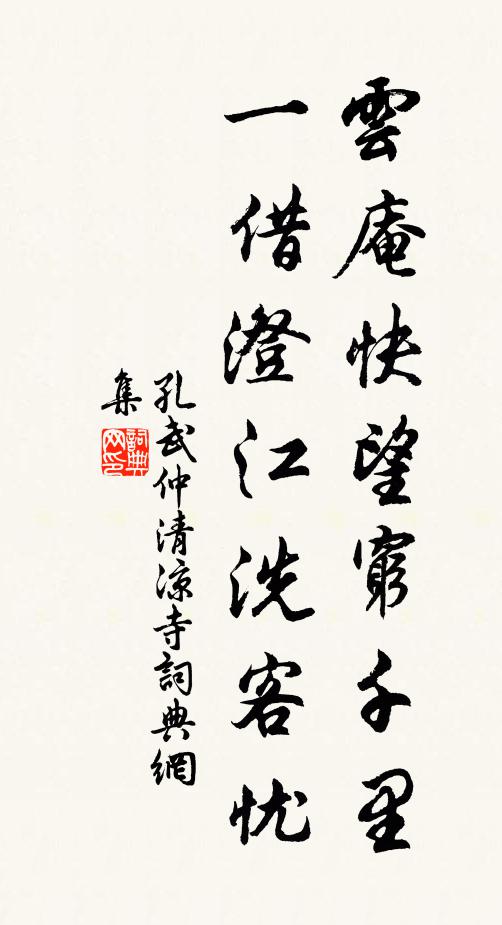 雲庵快望窮千里
一借澄江洗客忧
孔武仲清凉寺詞典網
集
詞典
网印